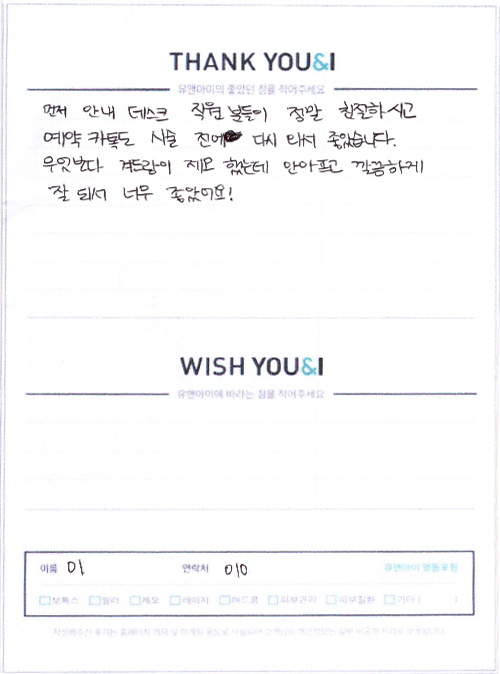 THANK YOU&I
유앤아이의 좋았던 점을 적어주세요
먼저 안내 데스크 직원 분들이 정말 친절하시고
예약 카톡도 시술 전에 다시 와서 좋았습니다.
무엇보다 겨드랑이 제모 했는데 안아프고 깔끔하게
잘 되서 너무 좋았어요!
WISH YOU&I
유앤아이에 바라는 점을 적어주세요
이름 이 연락처 010 유앤아이 명동포함
보톡스 필러 제모 레이저 여드름 피부관리 피부질환 기타 ( )